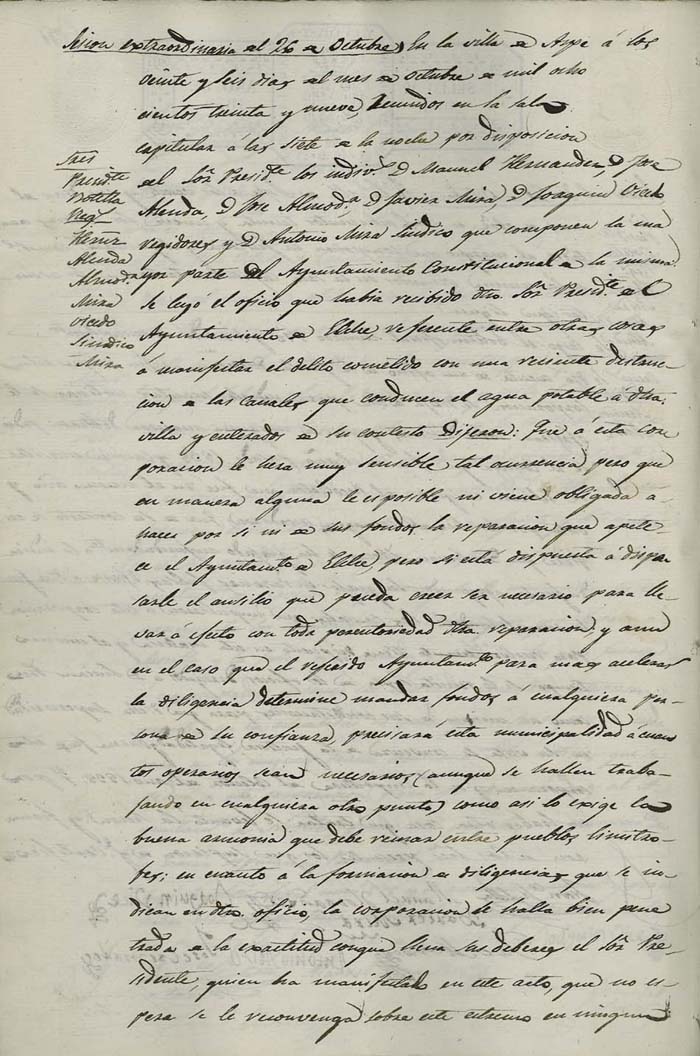 Sesion extraordinaria del 26 de Octubre) En la villa de Aspe á los
veinte y seis dias del mes de octubre de mil ocho
cientos treinta y nueve, Reunidos en la sala
capitular á las siete de la noche por disposicion
del Sor. Presidte. los indivs. D. Manuel Hernandez, D. Jose
Alenda, D. Jose Almoda. D. Javier Mira, D. Joaquin Vicedo
regidores y D. Antonio Mira Sindico que componen la ma
yor parte del Ayuntamiento Constitucional de la misma.
Sres
Presidte.
Botella
Regs.
Hernz
Alenda
Almoda.
Mira
Vicedo
Sindico
Mira
se leyo el oficio que habia recibido dho. Sor. Presidte. del
Ayuntamiento de Elche, referente entre otras cosas
á manifestar el delito cometido con una reciente destruc
cion de las canales que conducen el agua potable á dha.
villa y enterados de su contesto Dijeron: Que á esta cor
poracion le hera muy sensible tal ocurrencia, pero que
en manera alguna le es posible ni viene obligada á
hacer por si ni de sus fondos la reparacion que apete-
ce el Ayuntamto. de Elche, pero si está dispuesta á dispen
sarle el ausilio que pueda creer ser necesario para lle-
var á efecto con toda perentoriedad dha. reparacion, y aun
en el caso que el referido Ayuntamto. para mas acelerar
la diligencia determine mandar fondos á cualquiera per-
sona de su confianza, precisará esta municipalidad á cuan
tos operarios sean necesarios (aunque se hallen traba-
jando en cualquiera otro punto) como asi lo exige la
buena armonia que debe reinar entre pueblos limitro-
fes; en cuanto á la formacion de diligencias que se in-
dican en dho. oficio, la corporacion se halla bien pene
trada de la exactitud conque llena sus deberes el Sor. Pre-
sidente, quien ha manifestado en este acto, que no es-
pera se le reconvenga sobre este estremo en ningun